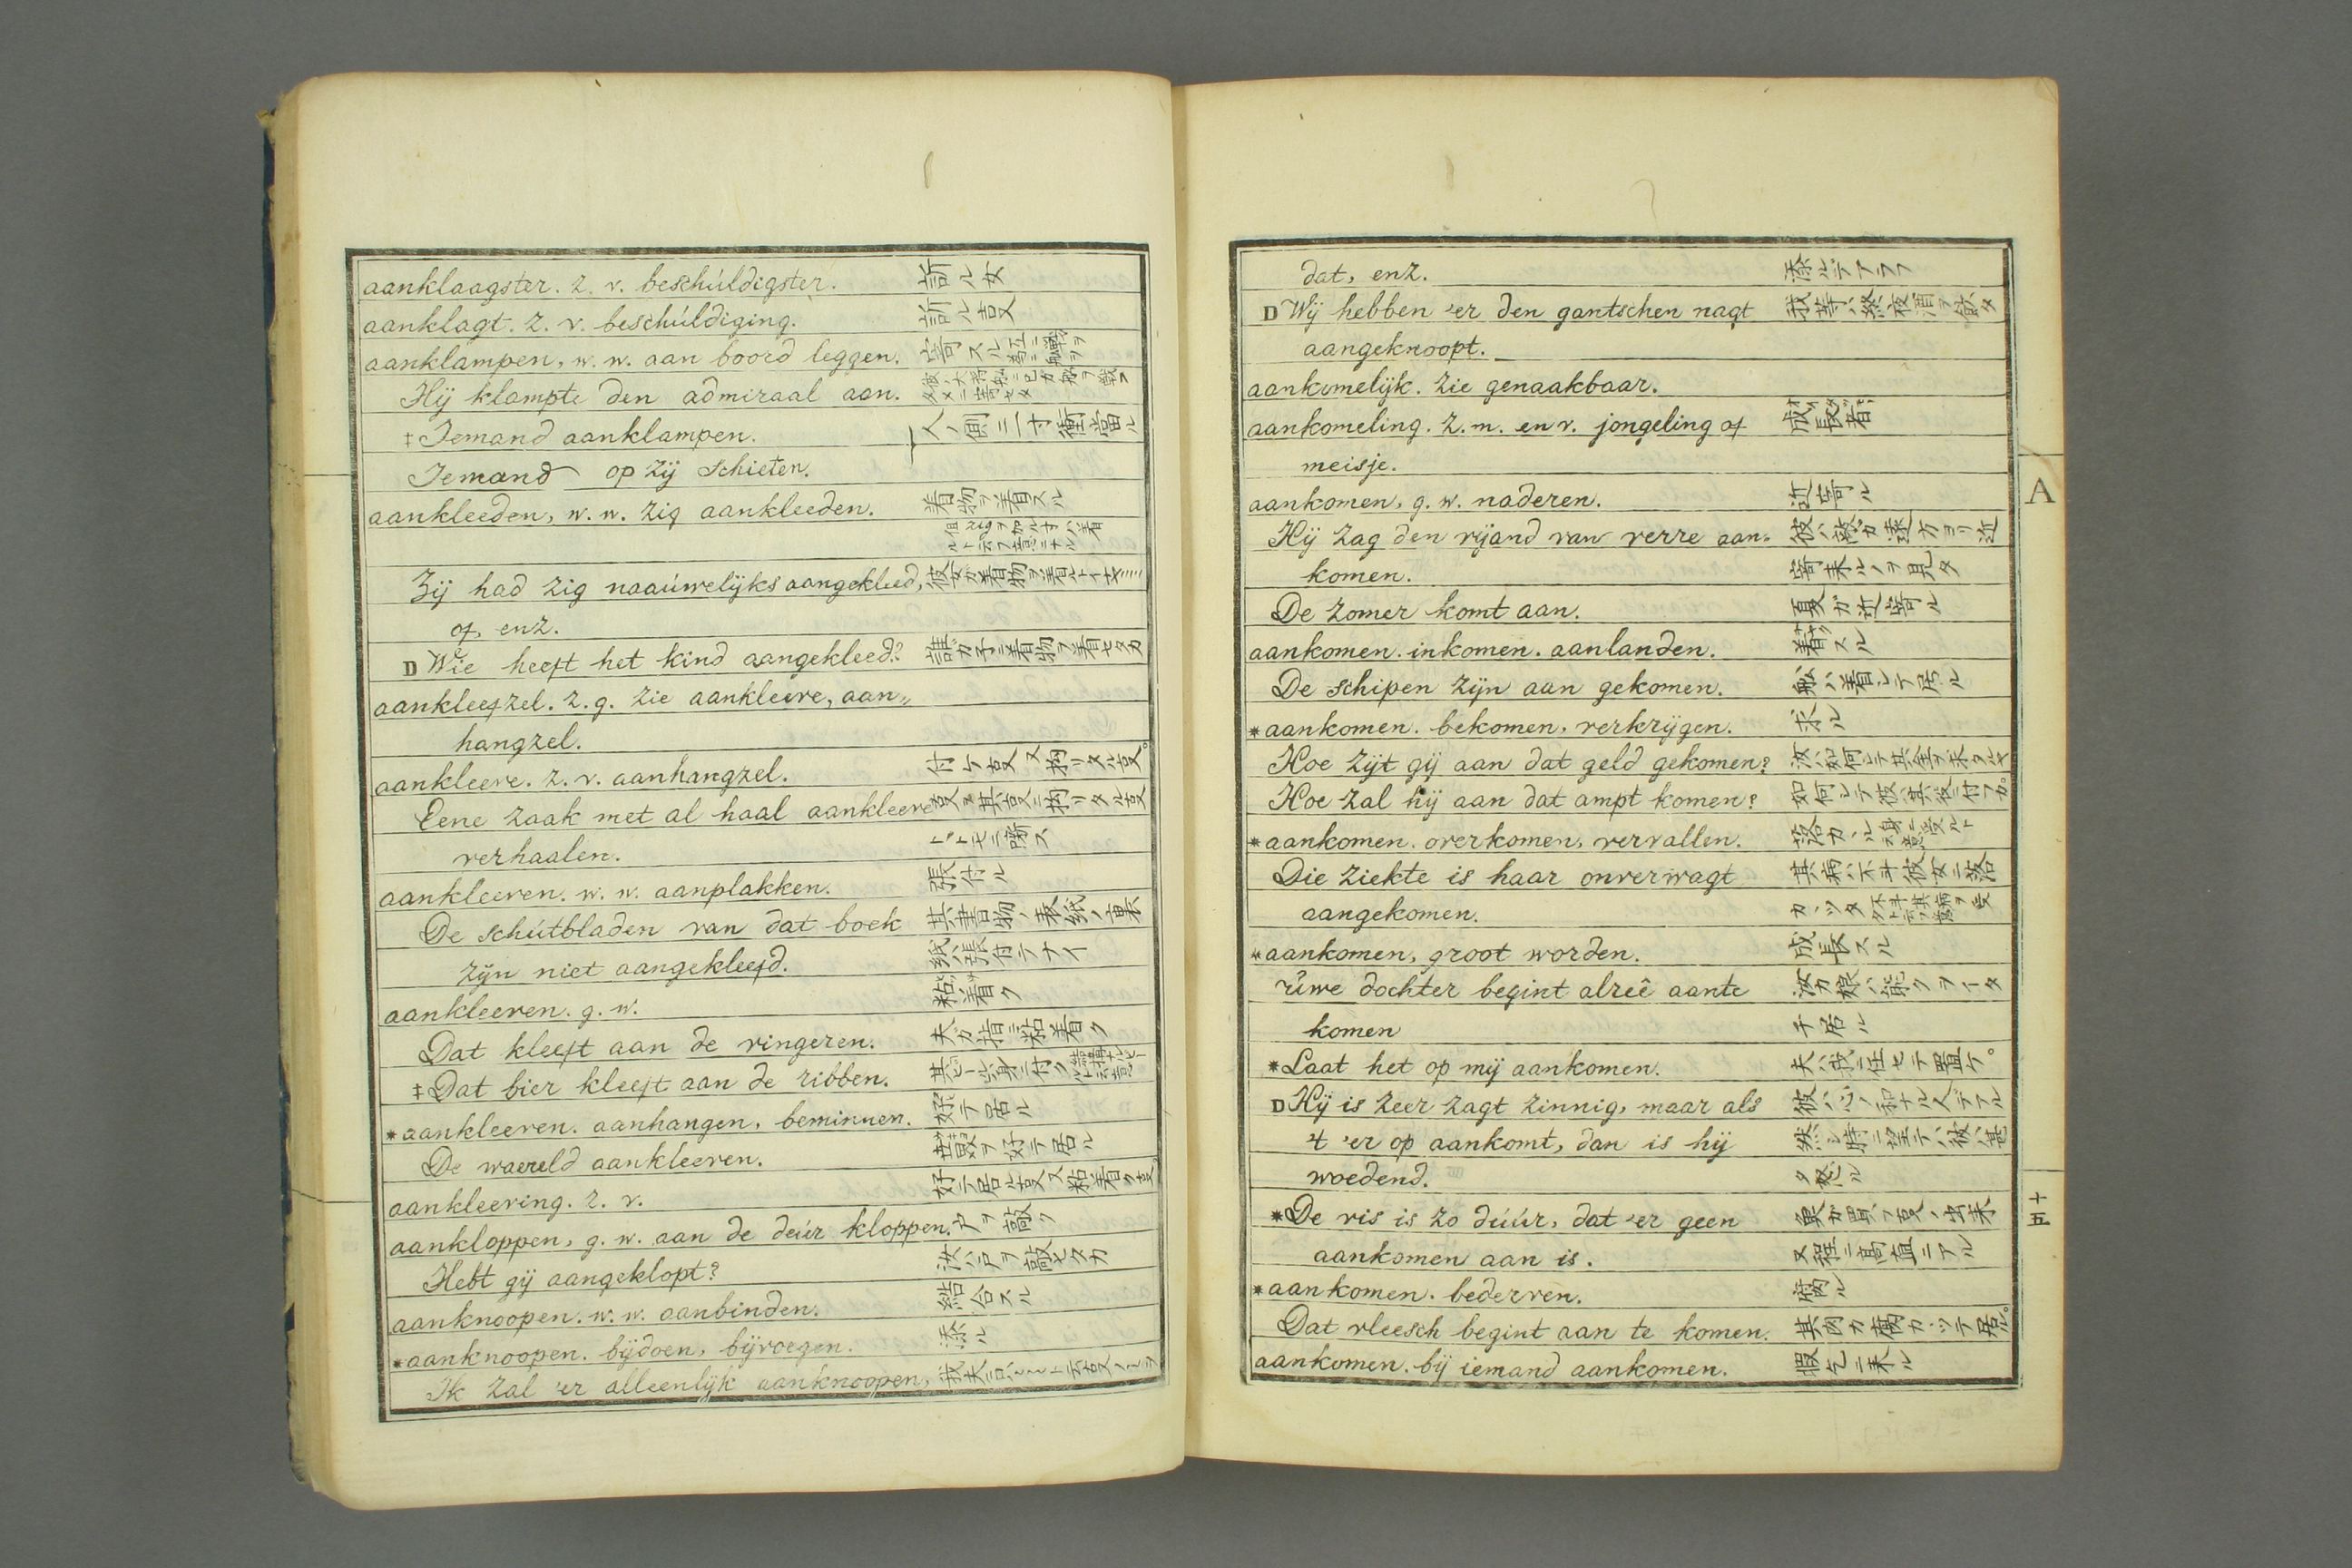 aanklaagster. z. v. beschúldigster. 訴ル女
aanklagt. z. v. beschúldiging. 訴ル叓
aanklampen, w. w. aan boord leggen. 寄スル
Hij klampte den admiraal aan.
‡ Iemand aanklampen. 人ノ側ニ一寸衝當ル
Iemand op zij schieten.
aankleeden, w. w. zig aankleeden. 着物ヲ着スル
Zij had zig naaúwelijks aangekleed, 彼女ガ着物ヲ着ルト
of, enz.
D Wie heeft het kind aangekleed? 誰ガ子ニ着物ヲ着セタカ
aankleefzel. z. g. zie aankleeve, aan„
hangzel.
aankleeve. z. v. aanhangzel. 付ケ叓又拘リタル叓。
Eene zaak met al haal aankleeve 叓ヲ其叓ニ拘リタル叓
verhaalen. トトモニ噺ス
aankleeven. w. w. aanplakken. 張付ル
De schútbladen van dat boek 其書物ノ表紙ノ裏
zijn niet aangekleefd. 紙ハ張付テナイ
aankleeven. g. w. 粘着ク
Dat kleeft aan de vingeren. 夫ガ指ニ粘着ク
‡ Dat bier kleeft aan de ribben.
* aankleeven. aanhangen, beminnen. 好テ居ル
De waereld aankleeven. 世界ヲ好テ居ル
aankleeving. z. v. 好テ居ル叓又粘着ク叓
aankloppen, g. w. aan de deúr kloppen. 戸ヲ敲ク
Hebt gij aangeklopt? 汝ハ戸ヲ敲セタカ
aanknoopen. w. w. aanbinden. 結合スル
* aanknoopen. bijdoen, bijvoegen. 添ル
Ik zal 'er alleenlijk aanknoopen,
dat, enz. 添ルデアラフ
D Wij hebben 'er den gantschen nagt 我等ハ終夜酒ヲ飲タ
aangeknoopt.
aankomelijk. zie genaakbaar.
aankomeling. z. m. en v. jongeling of 成長者
meisje.
aankomen, g. w. naderen. 近寄ル
Hij zag den vijand van verre aan„ 彼ハ敵ガ遠方ヨリ近
komen. 寄来ルノヲ見タ
De zomer komt aan. 夏ガ近寄ル
aankomen. inkomen. aanlanden. 着スル
De schipen zijn aan gekomen. 船ハ着シテ居ル
* aankomen. bekomen, verkrijgen. 求ル
Hoe zijt gij aan dat geld gekomen? 汝ハ如何シテ其金ヲ求タルヤ
Hoe zal hij aan dat ampt komen? 如何シテ彼ハ其役ニ付フカ。
* aankomen. overkomen, vervallen. 落カヽル
Die ziekte is haar onverwagt 其病ハ不斗彼女ニ落
aangekomen. カヽツタ
* aankomen, groot worden. 成長スル
úwe dochter begint alreê aante 汝カ娘ハ能クヲイタ
komen チ居ル
* Laat het op mij aankomen. 夫ハ我ニ任セテ置ケ。
D Hij is zeer zagt zinnig, maar als 彼ハ心ノ和ナル人デアル
't 'er op aankomt, dan is hij 然シ時ニ望テハ彼ハ甚
woedend. タ怒ル
* De vis is zo dúúr, dat 'er geen 魚ガ買フ叓ノ出来
aankomen aan is. ヌ程ニ高直ニアル
* aankomen. bederven. 腐ル
Dat vleesch begint aan te komen. 其肉カ腐カヽツテ居ル。
aankomen. bij iemand aankomen. 暇乞ニ来ル
A
十四